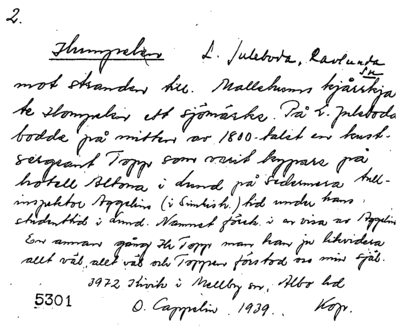 2.
Humpeken L. Juleboda, Ravlunda
sn
mot stranden till. Mallehums kjärrhja
te Homjeken ett sjömärke. På L. Juleboda
bodde på mitten av 1800-talet en kust-
sergeant Topp som varit kypare på
hotell Altona i Lund på sedermera tull-
inspektor Aggelins (i Simrish.) tid under hans
studenttid i Lund. Namnet försk. i en visa av Aggelin
En annan gång the Topp man kan ju likvidera
allt väl, allt väl och Toppen förstod oss min själ.
3972 Hivik i Mellby sn, Albo hd
5301 O. Cappelin 1939. Kop.